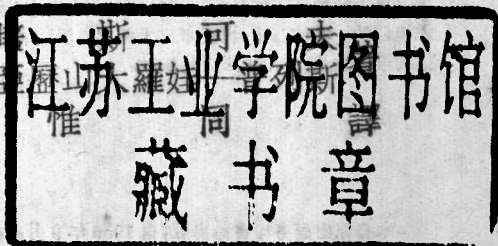 江苏工业学院图书馆
惟同譯
藏书章